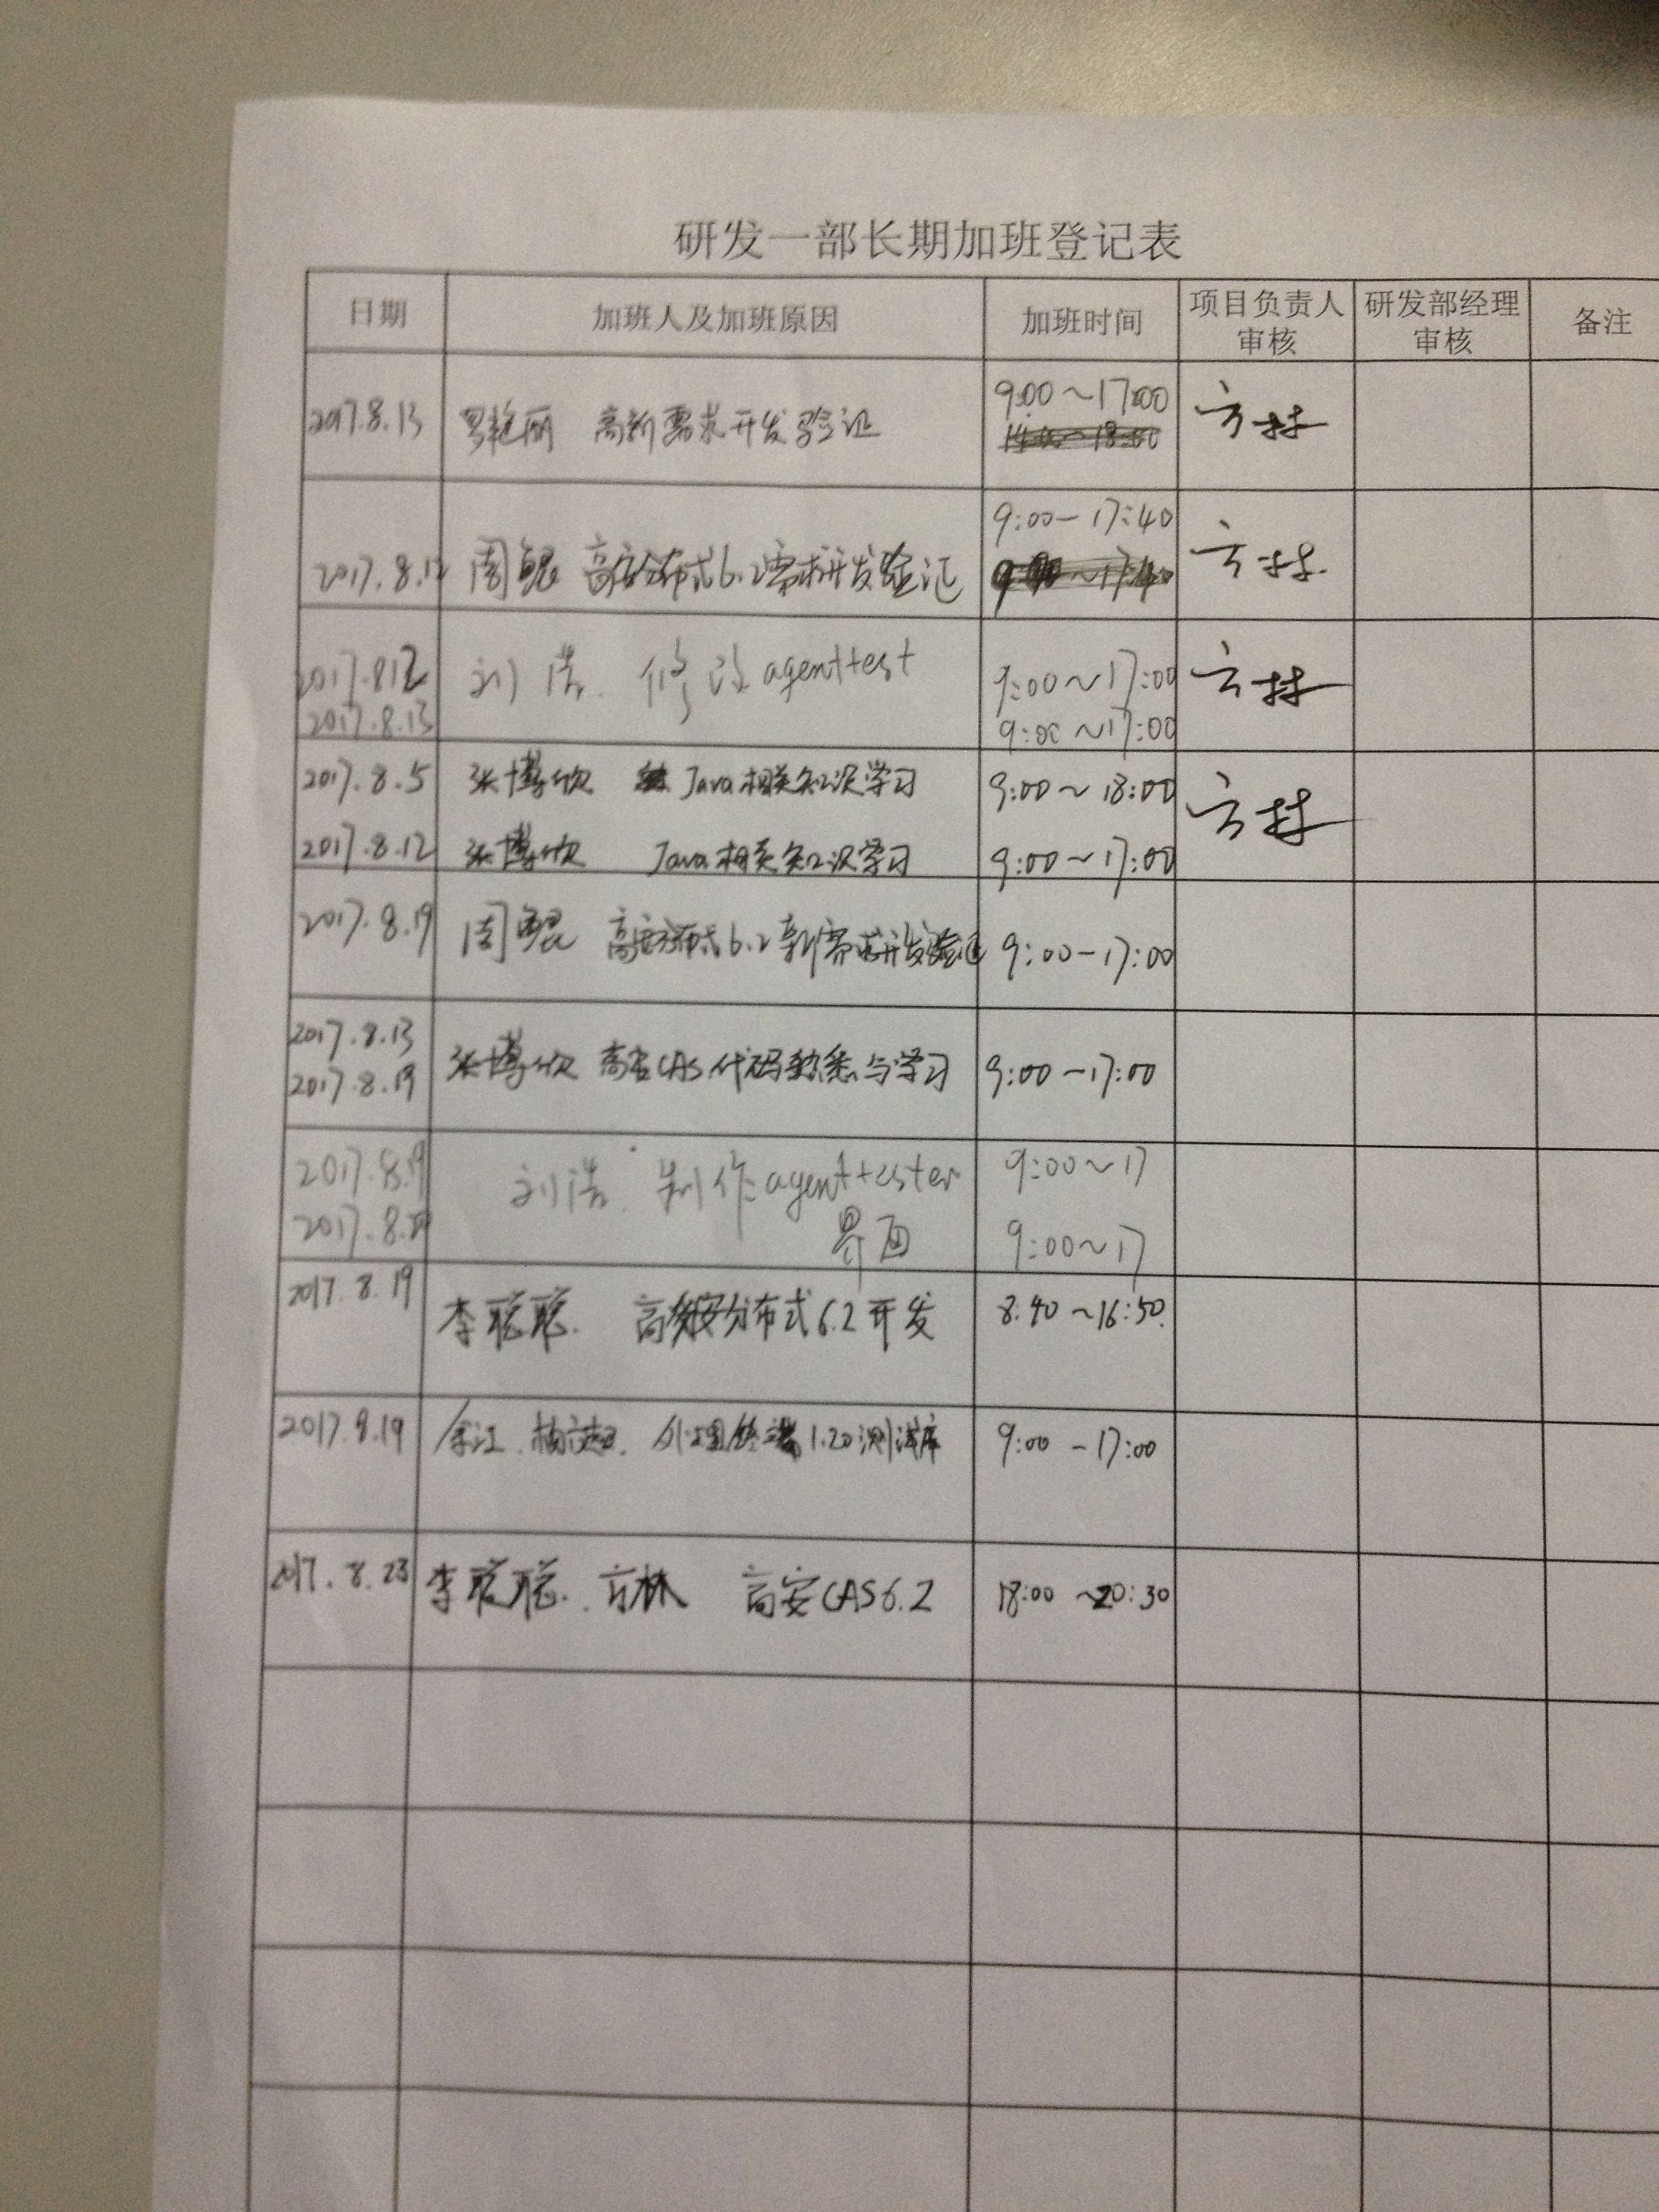 研发一部长期加班登记表
日期 加班人及加班原因 加班时间 项目负责人审核 研发部经理审核 备注
2017.8.13 罗艳丽 高新需求开发验证 9:00~17:00 方林
2017.8.12 周鲲 高安分布式6.2需求开发验证 9:00-17:40 方林
2017.8.12 刘浩 修改agenttest 9:00~17:00 方林
2017.8.13 9:00~17:00
2017.8.5 张博欣 Java相关知识学习 9:00~18:00 方林
2017.8.12 张博欣 Java相关知识学习 9:00~17:00
2017.8.19 周鲲 高安分布式6.2新需求开发验证 9:00-17:00
2017.8.13
2017.8.19 张博欣 高安CAS代码熟悉与学习 9:00-17:00
2017.8.19 刘浩 制作agenttester 9:00~17
2017.8. 界面 9:00~17
2017.8.19 李聪聪. 高安分布式6.2开发 8:40~16:50
2017.8.19 余江 处理终端1.20测试库 9:00-17:00
2017.8.23 李聪聪. 方林 高安CAS6.2 18:00~20:30